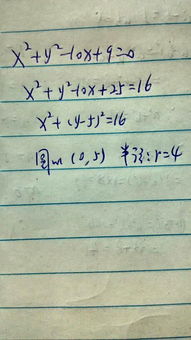 x²+y²-10x+9=0
x²+y²-10x+25=16
x²+(y-5)²=16
圆心(0,5) 半径:r=4